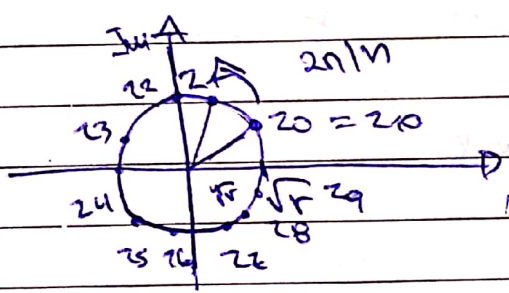 Im
2π/n
z2 z1
z0 = z10
z3
z4 √r z9
z8
z5 z6 z7